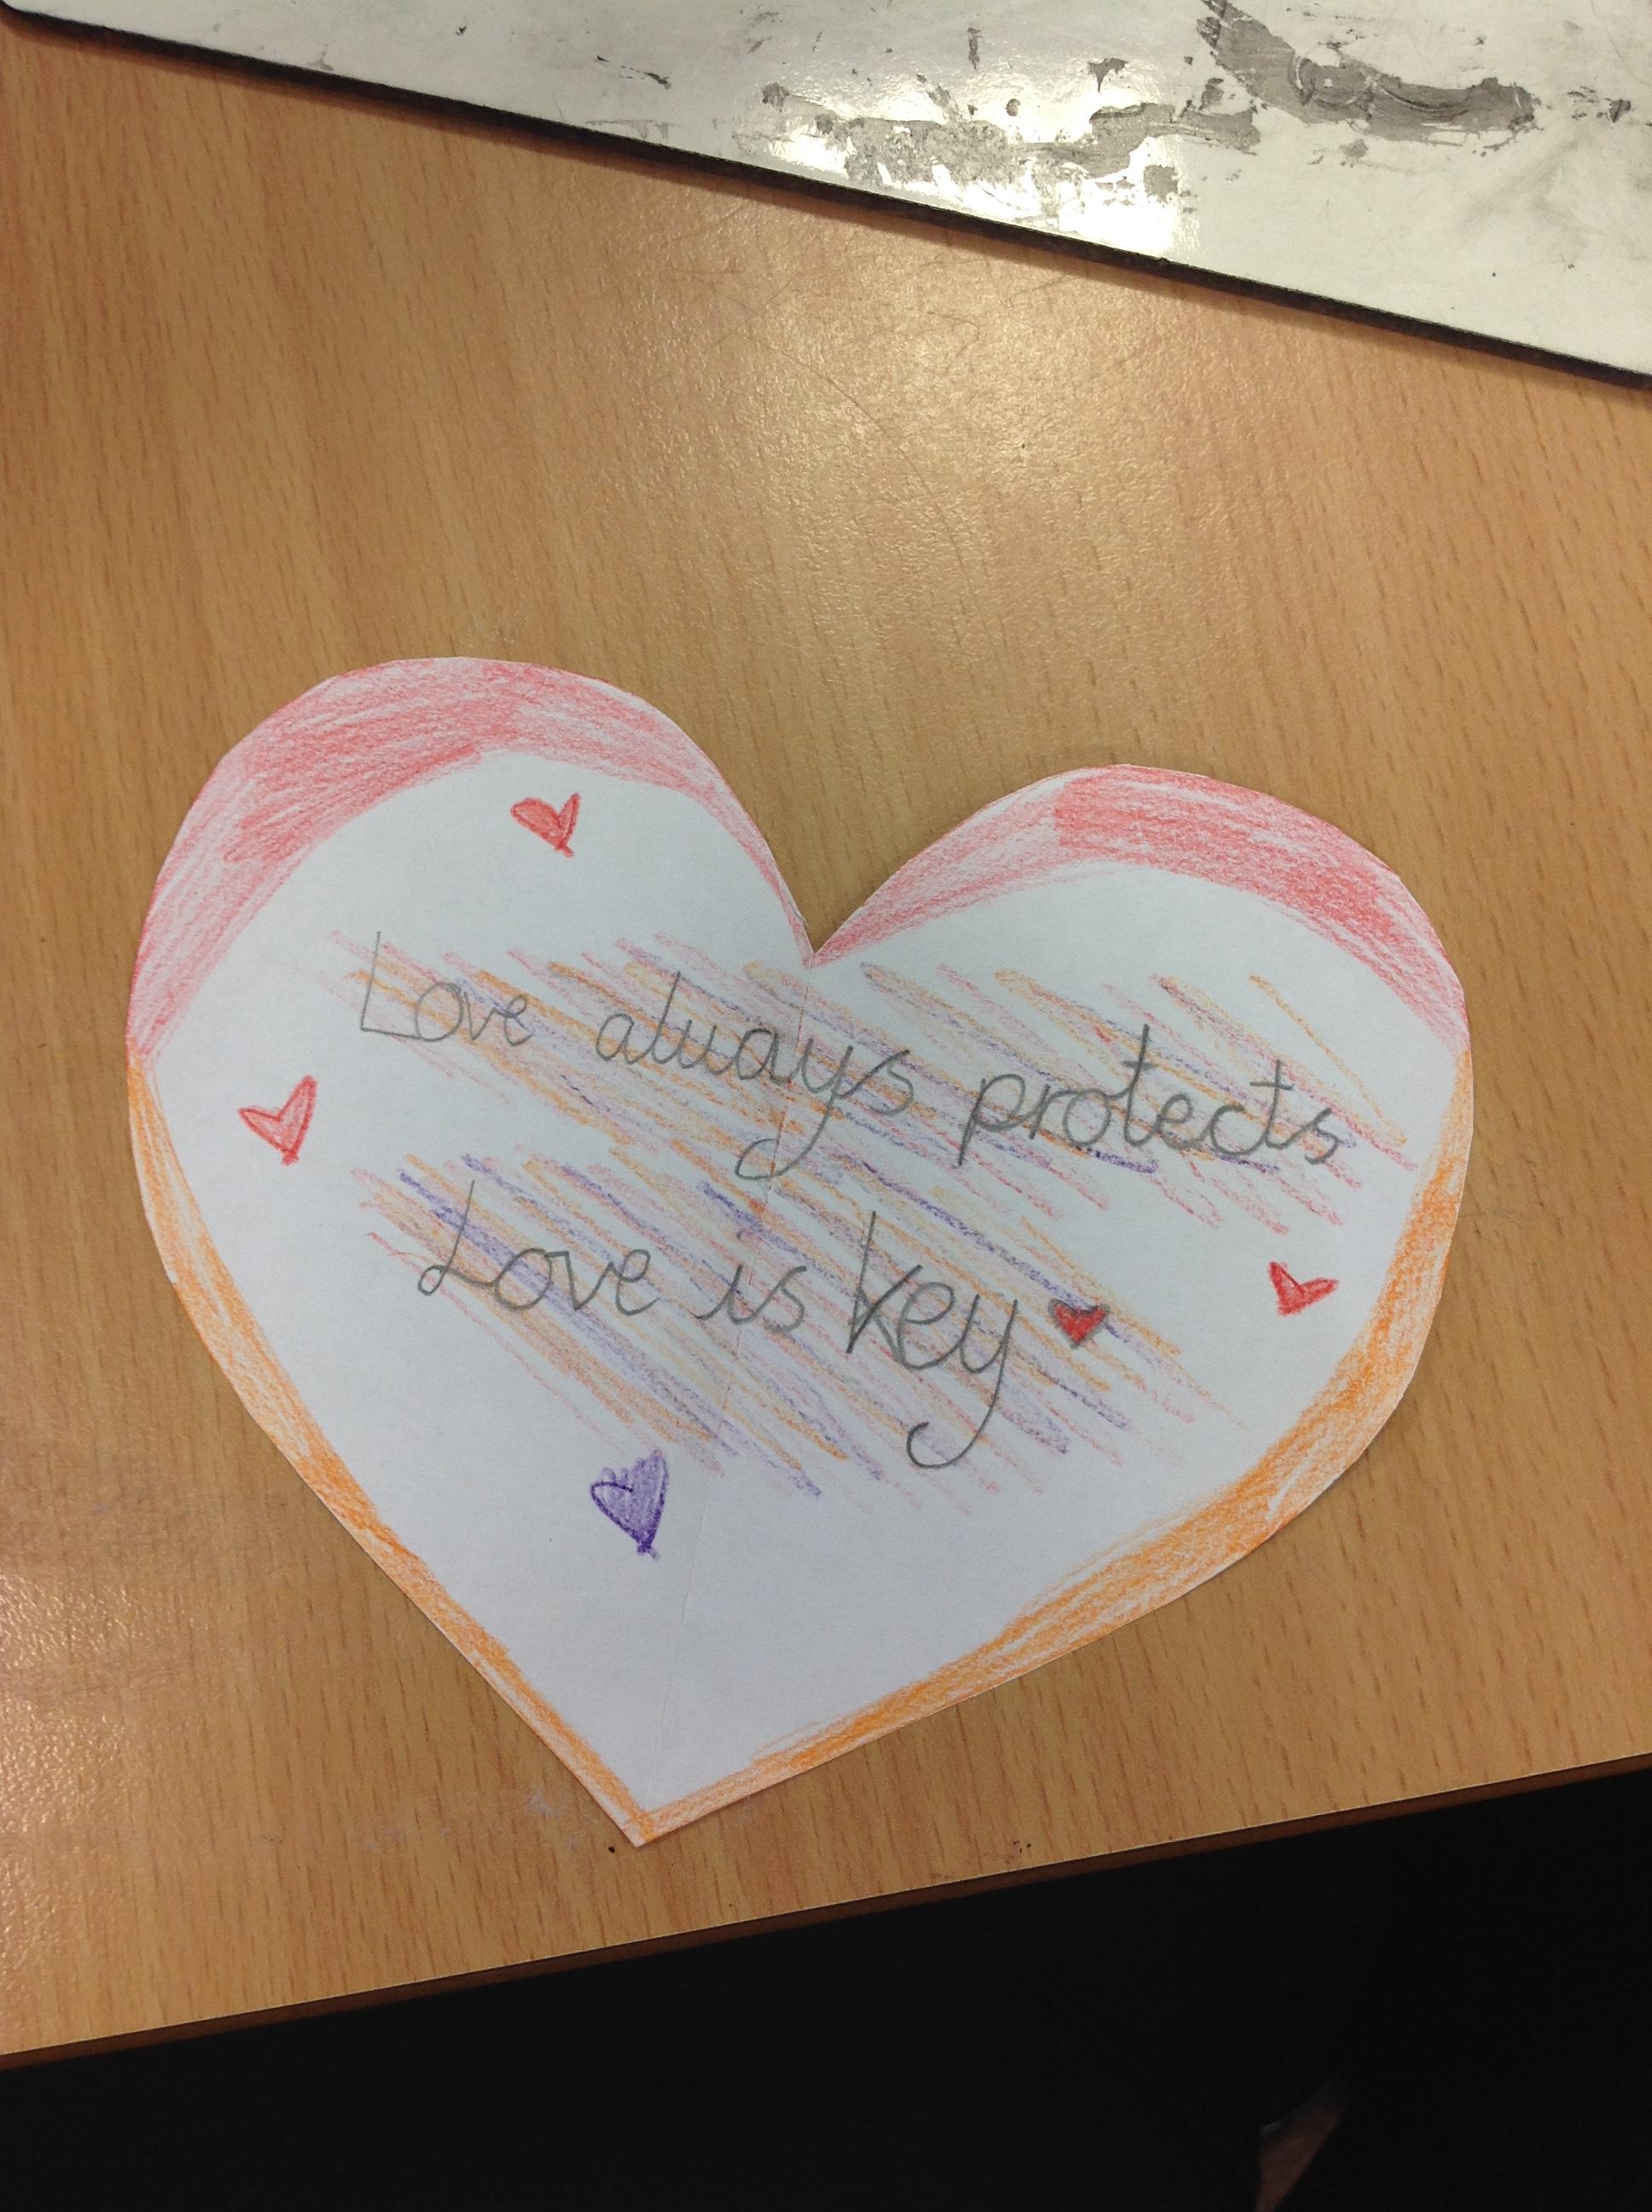 Love always protects
Love is key